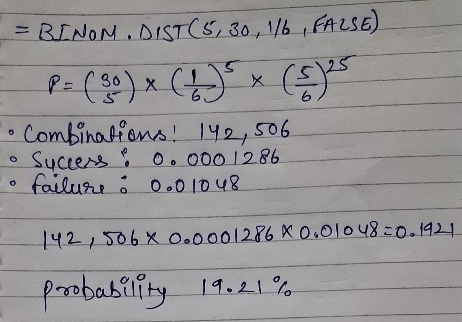 = BINOM.DIST(5, 30, 1/6, FALSE)
P = (30/5) × (1/6)^5 × (5/6)^25
• Combinations: 142,506
• Success: 0.0001286
• failure: 0.01048
142,506 × 0.0001286 × 0.01048 = 0.1921
probability 19.21%